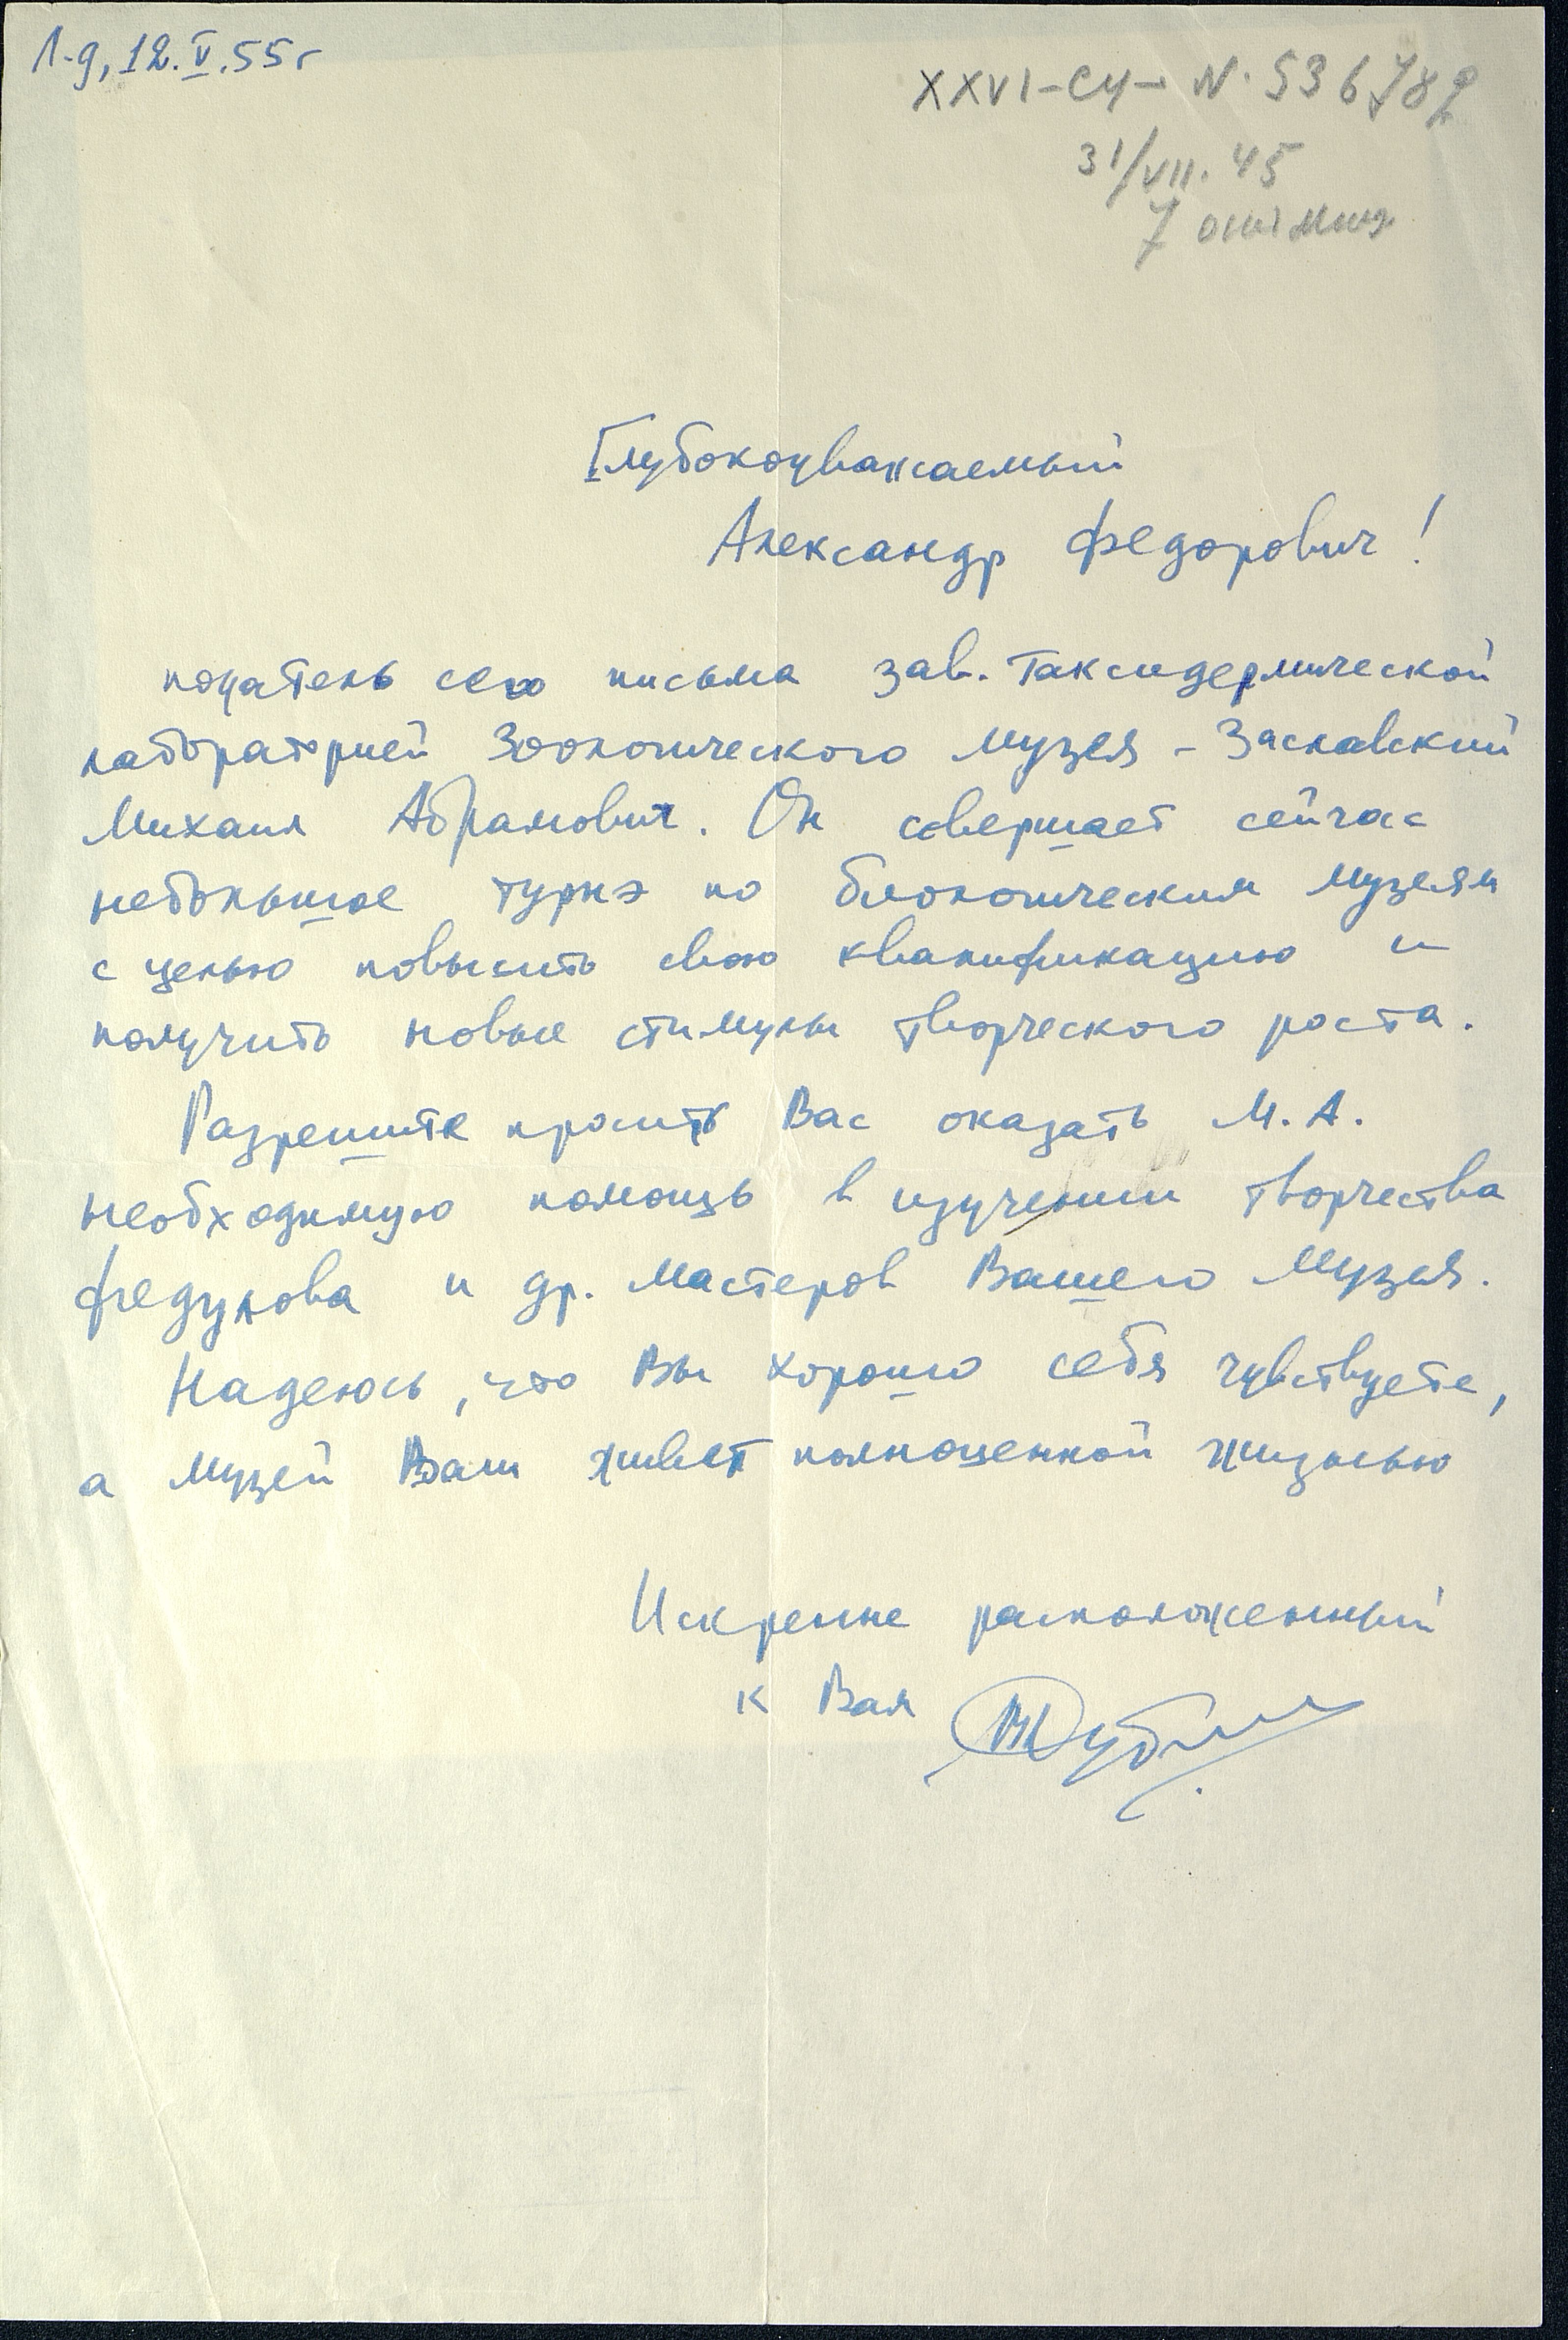 Л-д, 12.V.55г
XXVI-СЧ- N. 536782
31/VII. 45
7
Глубокоуважаемый
Александр Федорович!
податель сего письма зав. Таксидермической
лабораторией Зоологического Музея - Заславский
Михаил Абрамович. Он совершает сейчас
небольшое турнэ по биологическим Музеям
с целью повысить свою квалификацию и
получить новые стимулы творческого роста.
Разрешите просить Вас оказать М.А.
необходимую помощь в изучении творчества
Федулова и др. Мастеров Вашего Музея.
Надеюсь, что Вы хорошо себя чувствуете,
а Музей Ваш живет полноценной жизнью
Искренне расположенный
к Вам